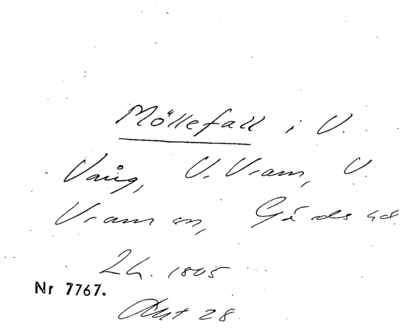 Möllefall i V.
Vång, V. Vram, V.
Vram sn, Gärds hd
Lh. 1805
Nr 7767.
28